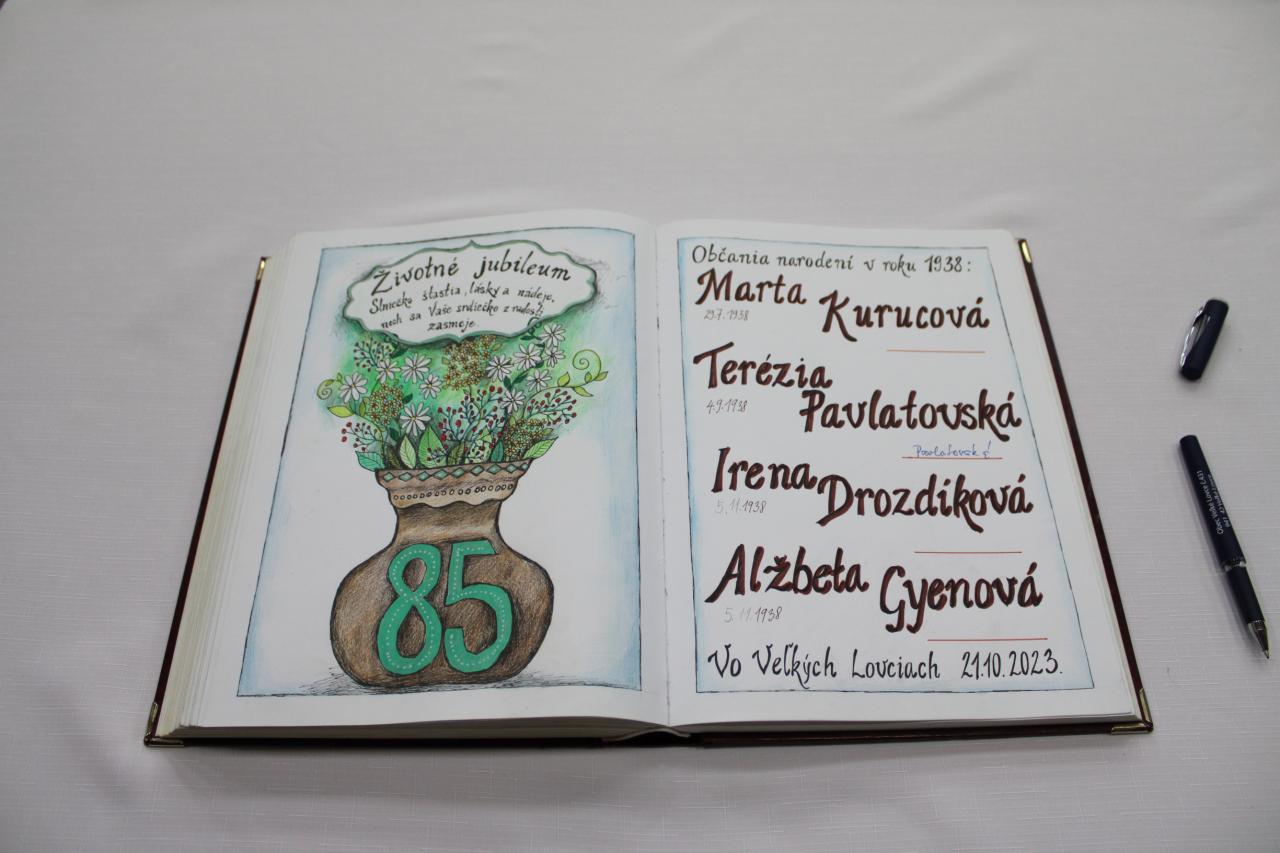 Životné jubileum
Slniečko šťastia, lásky a nádeje,
nech sa Vaše srdiečko z radosti
zasmeje.
85
Občania narodení v roku 1938:
Marta Kurucová
29.7.1938
Terézia Pavlatovská
4.9.1938
Pavlatovská
Irena Drozdíková
5.11.1938
Alžbeta Gyenová
5.11.1938
Vo Veľkých Lovciach 21.10.2023.